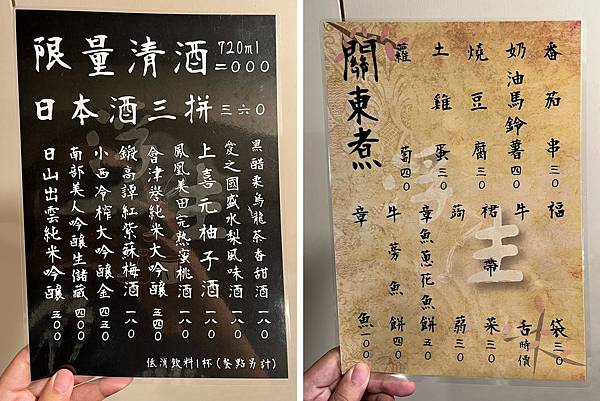 限量清酒 720ml 二〇〇〇
日本酒三拼 三六〇
黑酷柔烏龍茶香甜酒 一八〇
定之國盛水梨風味酒 一八〇
鳳凰美田完熟蜜桃酒 一八〇
上喜元柚子酒 一八〇
會津誉純米大吟釀 五四〇
鍛高譚紅紫蘇梅酒 一八〇
小西冷榨大吟釀金 四五〇
南部美人吟釀生儲藏 四〇〇
日山出雲純米吟釀 五〇〇
低消飲料1杯(餐點另計)
關東煮
番茄串 三〇
奶油馬鈴薯 四〇
燒豆腐 三〇
土雞蛋 三〇
蘿蔔 四〇
福袋 三〇
牛舌 時價
裙帶菜 三〇
蒟蒻 三〇
章魚蔥花魚餅 五〇
牛蒡魚餅 四〇
章魚 一〇〇
浮生